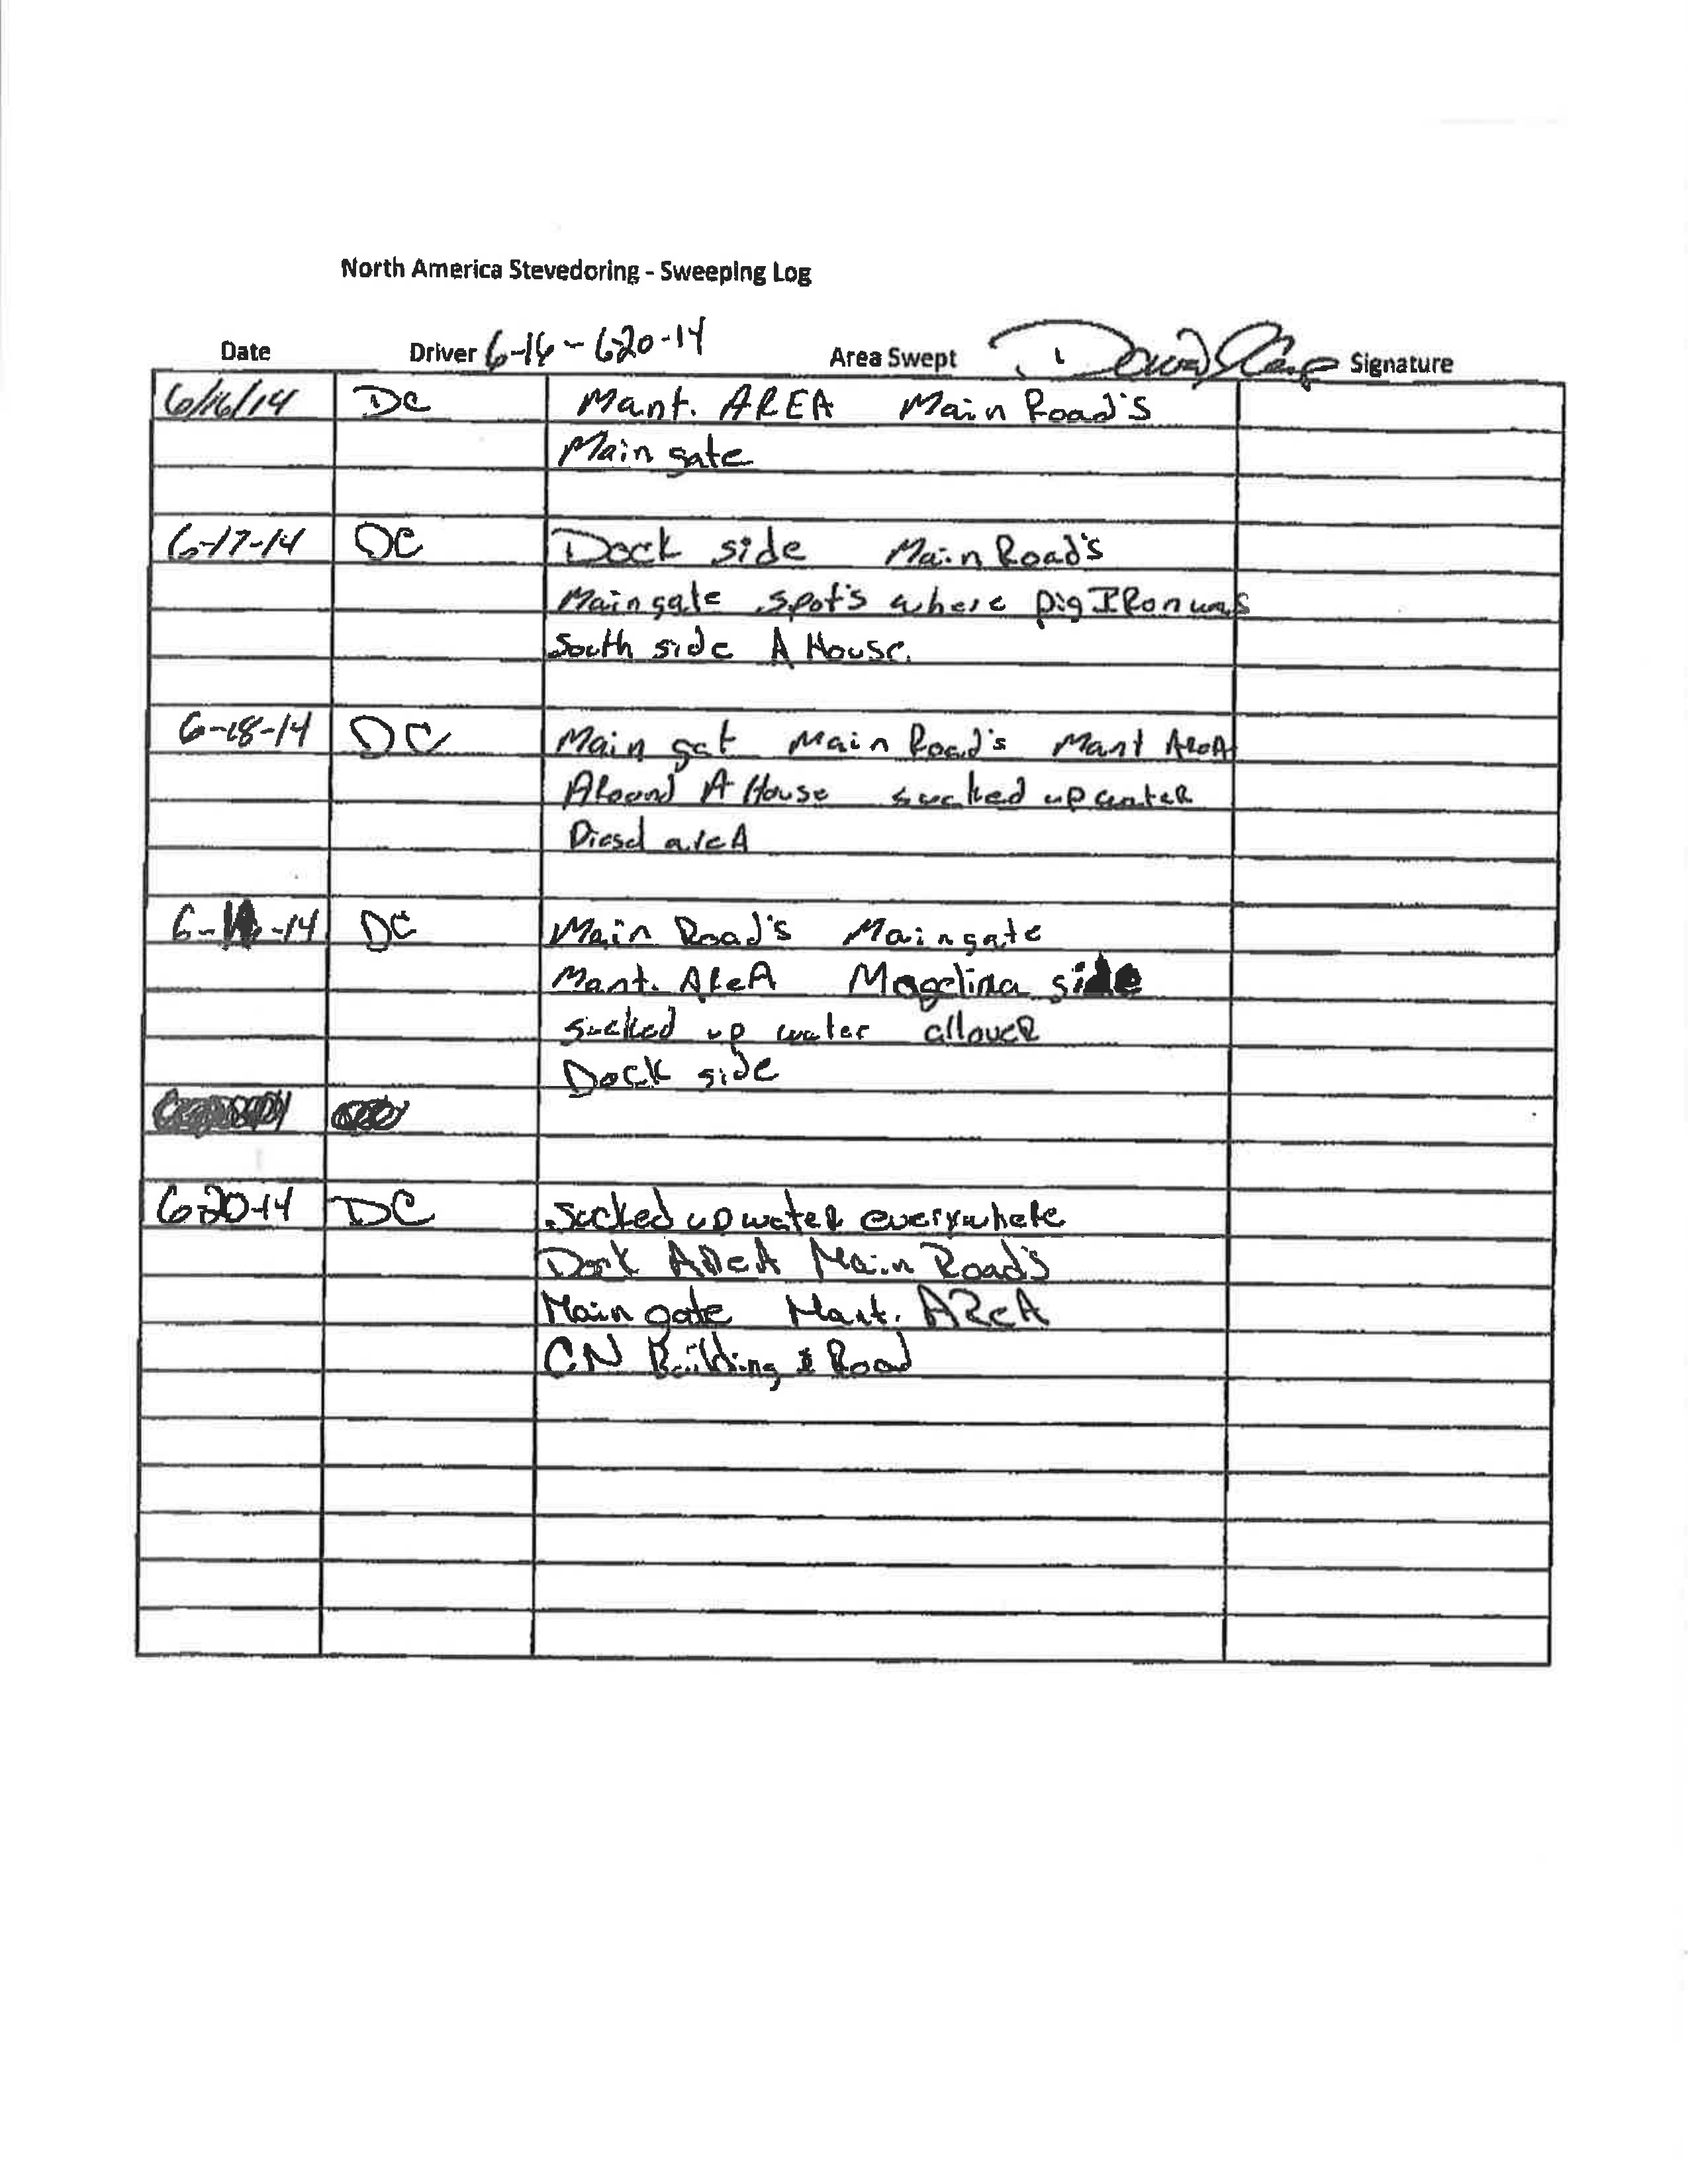 North America Stevedoring - Sweeping Log
Date Driver 6-16 - 6-20-14 Area Swept Signature
6/16/14 DC Mant. AREA Main Road's
Main gate
6-17-14 DC Dock side Main Road's
Main gate spot's where pig IRon was
South side A House.
6-18-14 DC Main gat Main Road's Mant AReA
ARound A House sucked up wateR
Diesel areA
DC Main Road's Main gate
Mant. AReA side
sucked up water all oveR
Dock side
6-20-14 DC Sucked up wateR everywhere
Dock AReA Main Road's
Main gate Mant. AReA
CN Building & Road